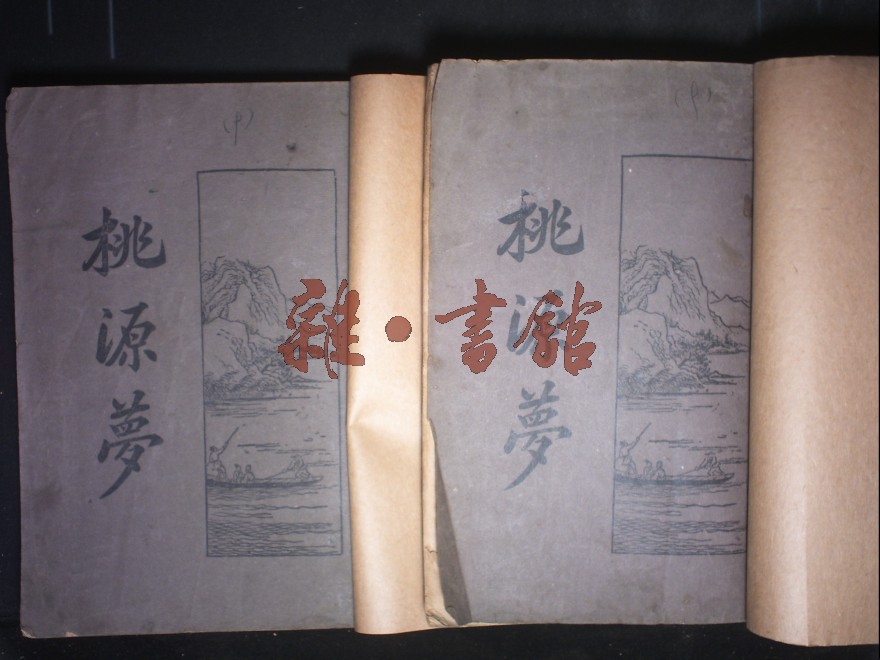 桃源夢
桃源夢
雜·書館